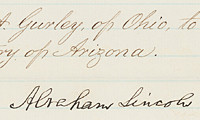 A. Gurley, of Ohio, to
ry of Arizona.
Abraham Lincoln